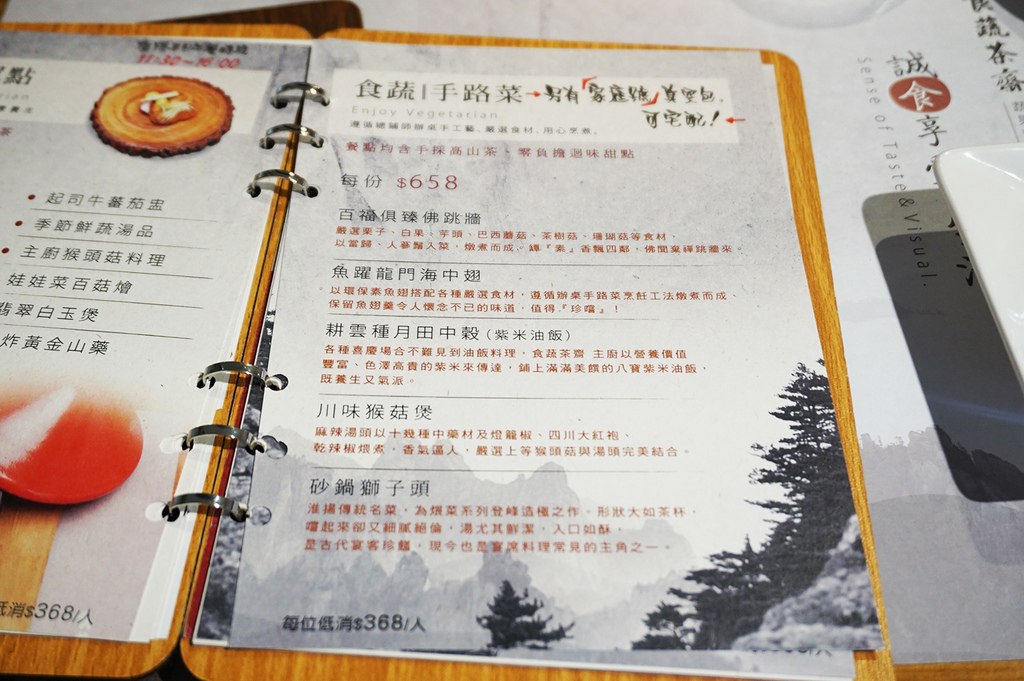 11:30~16:00
點
起司牛蕃茄盅
季節鮮蔬湯品
主廚猴頭菇料理
娃娃菜百菇燴
翡翠白玉煲
炸黃金山藥
低消$368/人
食蔬|手路菜→另有「家庭號」真空包。
可宅配!←
Enjoy Vegetatian
遵循總鋪師辦桌手工藝。嚴選食材、用心烹煮。
餐點均含手採高山茶、零負擔迴味甜點
每份 $658
百福俱臻佛跳牆
嚴選栗子、白果、芋頭、巴西蘑菇、茶樹菇、珊瑚菇等食材，
以當歸、人蔘鬚入菜，燉煮而成。罈『素』香飄四鄰，佛聞棄禪跳牆來。
魚躍龍門海中翅
以環保素魚翅搭配各種嚴選食材，遵循辦桌手路菜烹飪工法燉煮而成、
保留魚翅羹令人懷念不已的味道，值得『珍嚐』！
耕雲種月田中穀(紫米油飯)
各種喜慶場合不難見到油飯料理，食蔬茶齋 主廚以營養價值
豐富、色澤高貴的紫米來傳達，鋪上滿滿美饌的八寶紫米油飯，
既養生又氣派。
川味猴菇煲
麻辣湯頭以十幾種中藥材及燈籠椒、四川大紅袍、
乾辣椒煨煮，香氣逼人，嚴選上等猴頭菇與湯頭完美結合。
砂鍋獅子頭
淮揚傳統名菜，為煨菜系列登峰造極之作。形狀大如茶杯，
嚐起來卻又細膩絕倫。湯尤其鮮潔，入口如酥，
是古代宴客珍饈，現今也是宴席料理常見的主角之一。
每位低消$368/人
誠食享
Sense of Taste & Visual.
食蔬茶齋